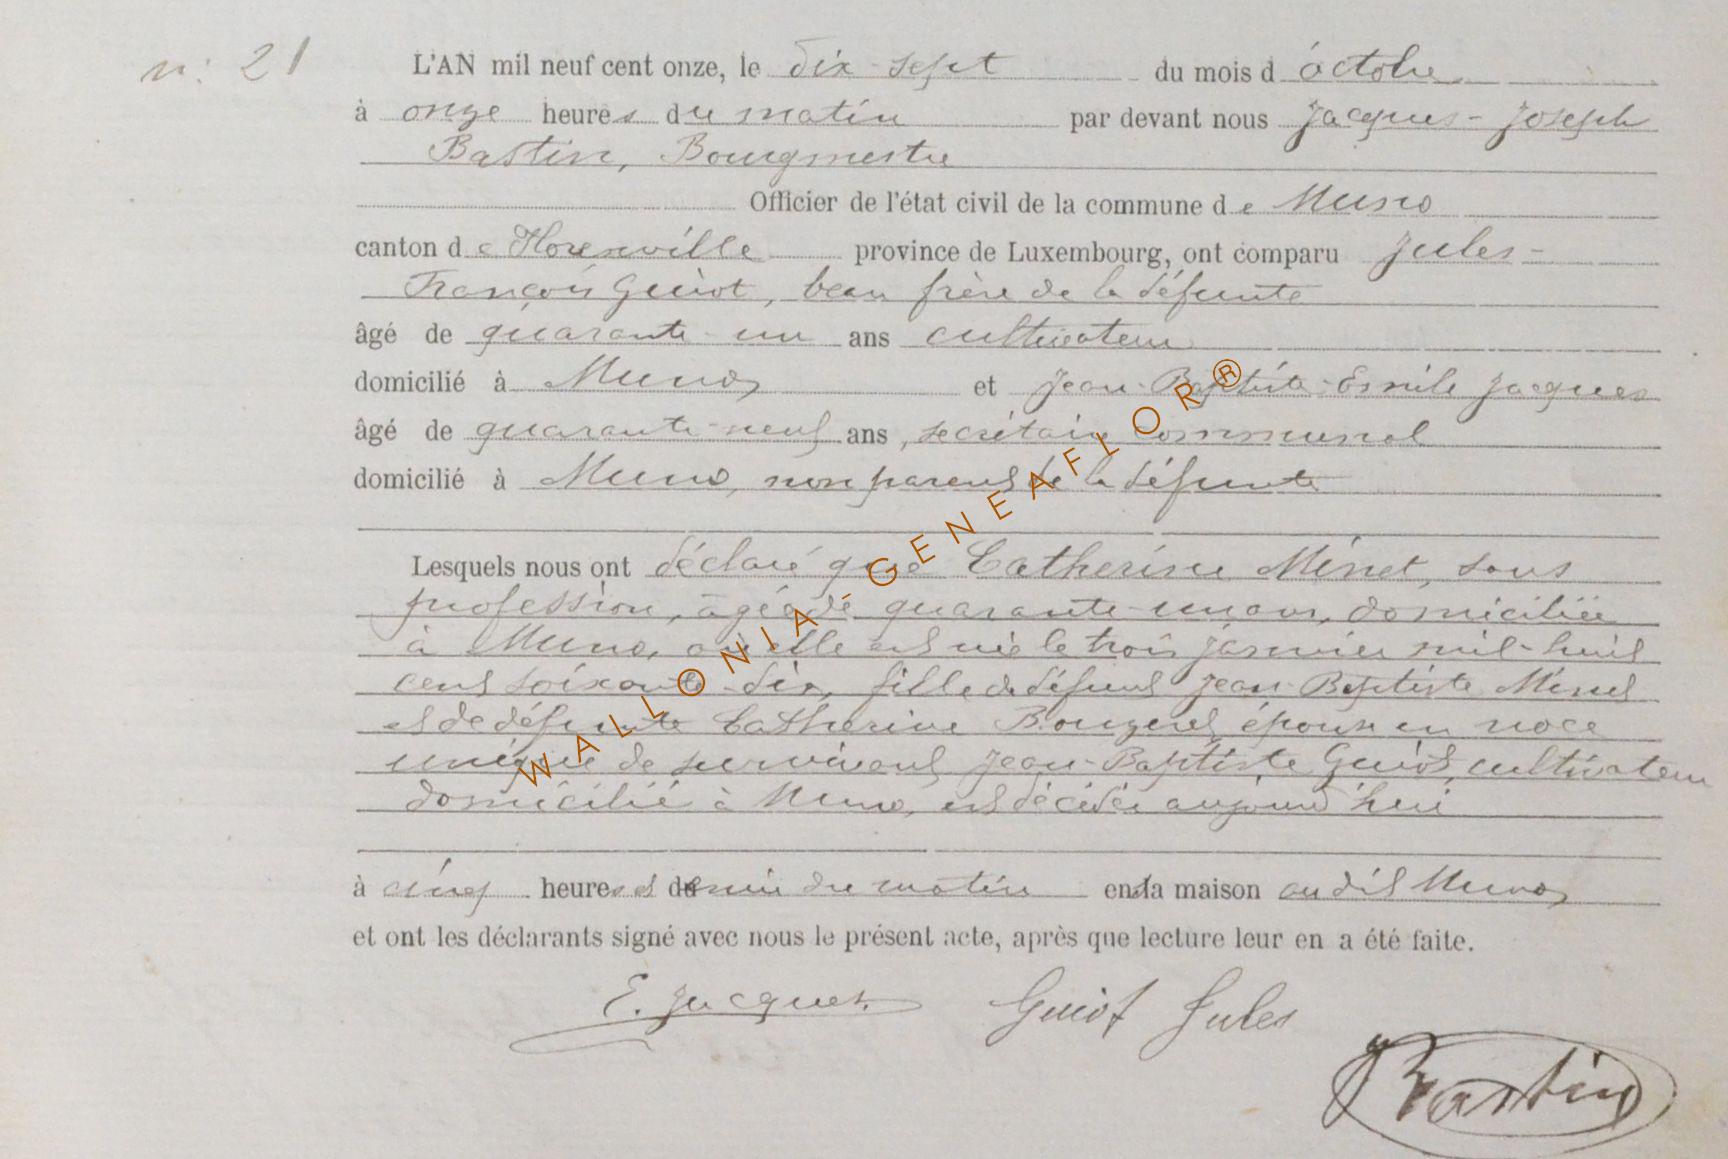 n° 21
L'AN mil neuf cent onze, le dix-sept du mois d'octobre
à onze heures du matin par devant nous Jacques-Joseph
Bastin, Bourgmestre
Officier de l'état civil de la commune de Muno
canton de Florenville province de Luxembourg, ont comparu Jules-
François Guiot, beau frère de la défunte
âgé de quarante-un ans cultivateur
domicilié à Muno, et Jean-Baptiste-Emile Jacques
âgé de quarante-neuf ans, secrétaire communal
domicilié à Muno, non parent de la défunte
Lesquels nous ont déclaré que Catherine Minet, sans
profession, âgée de quarante-un ans, domiciliée
à Muno, où elle est née le trois janvier mil-huit
cent soixante-dix, fille de défunt Jean-Baptiste Minet
et de défunte Catherine épouse en noce
unique de survivant Jean-Baptiste Guiot, cultivateur
domicilié à Muno, est décédée aujourd'hui
à cinq heures et demie du matin en sa maison au dit Muno,
et ont les déclarants signé avec nous le présent acte, après que lecture leur en a été faite.
E. Jacques. Guiot Jules
Bastin
WALLONIA-GENEAFLOR®